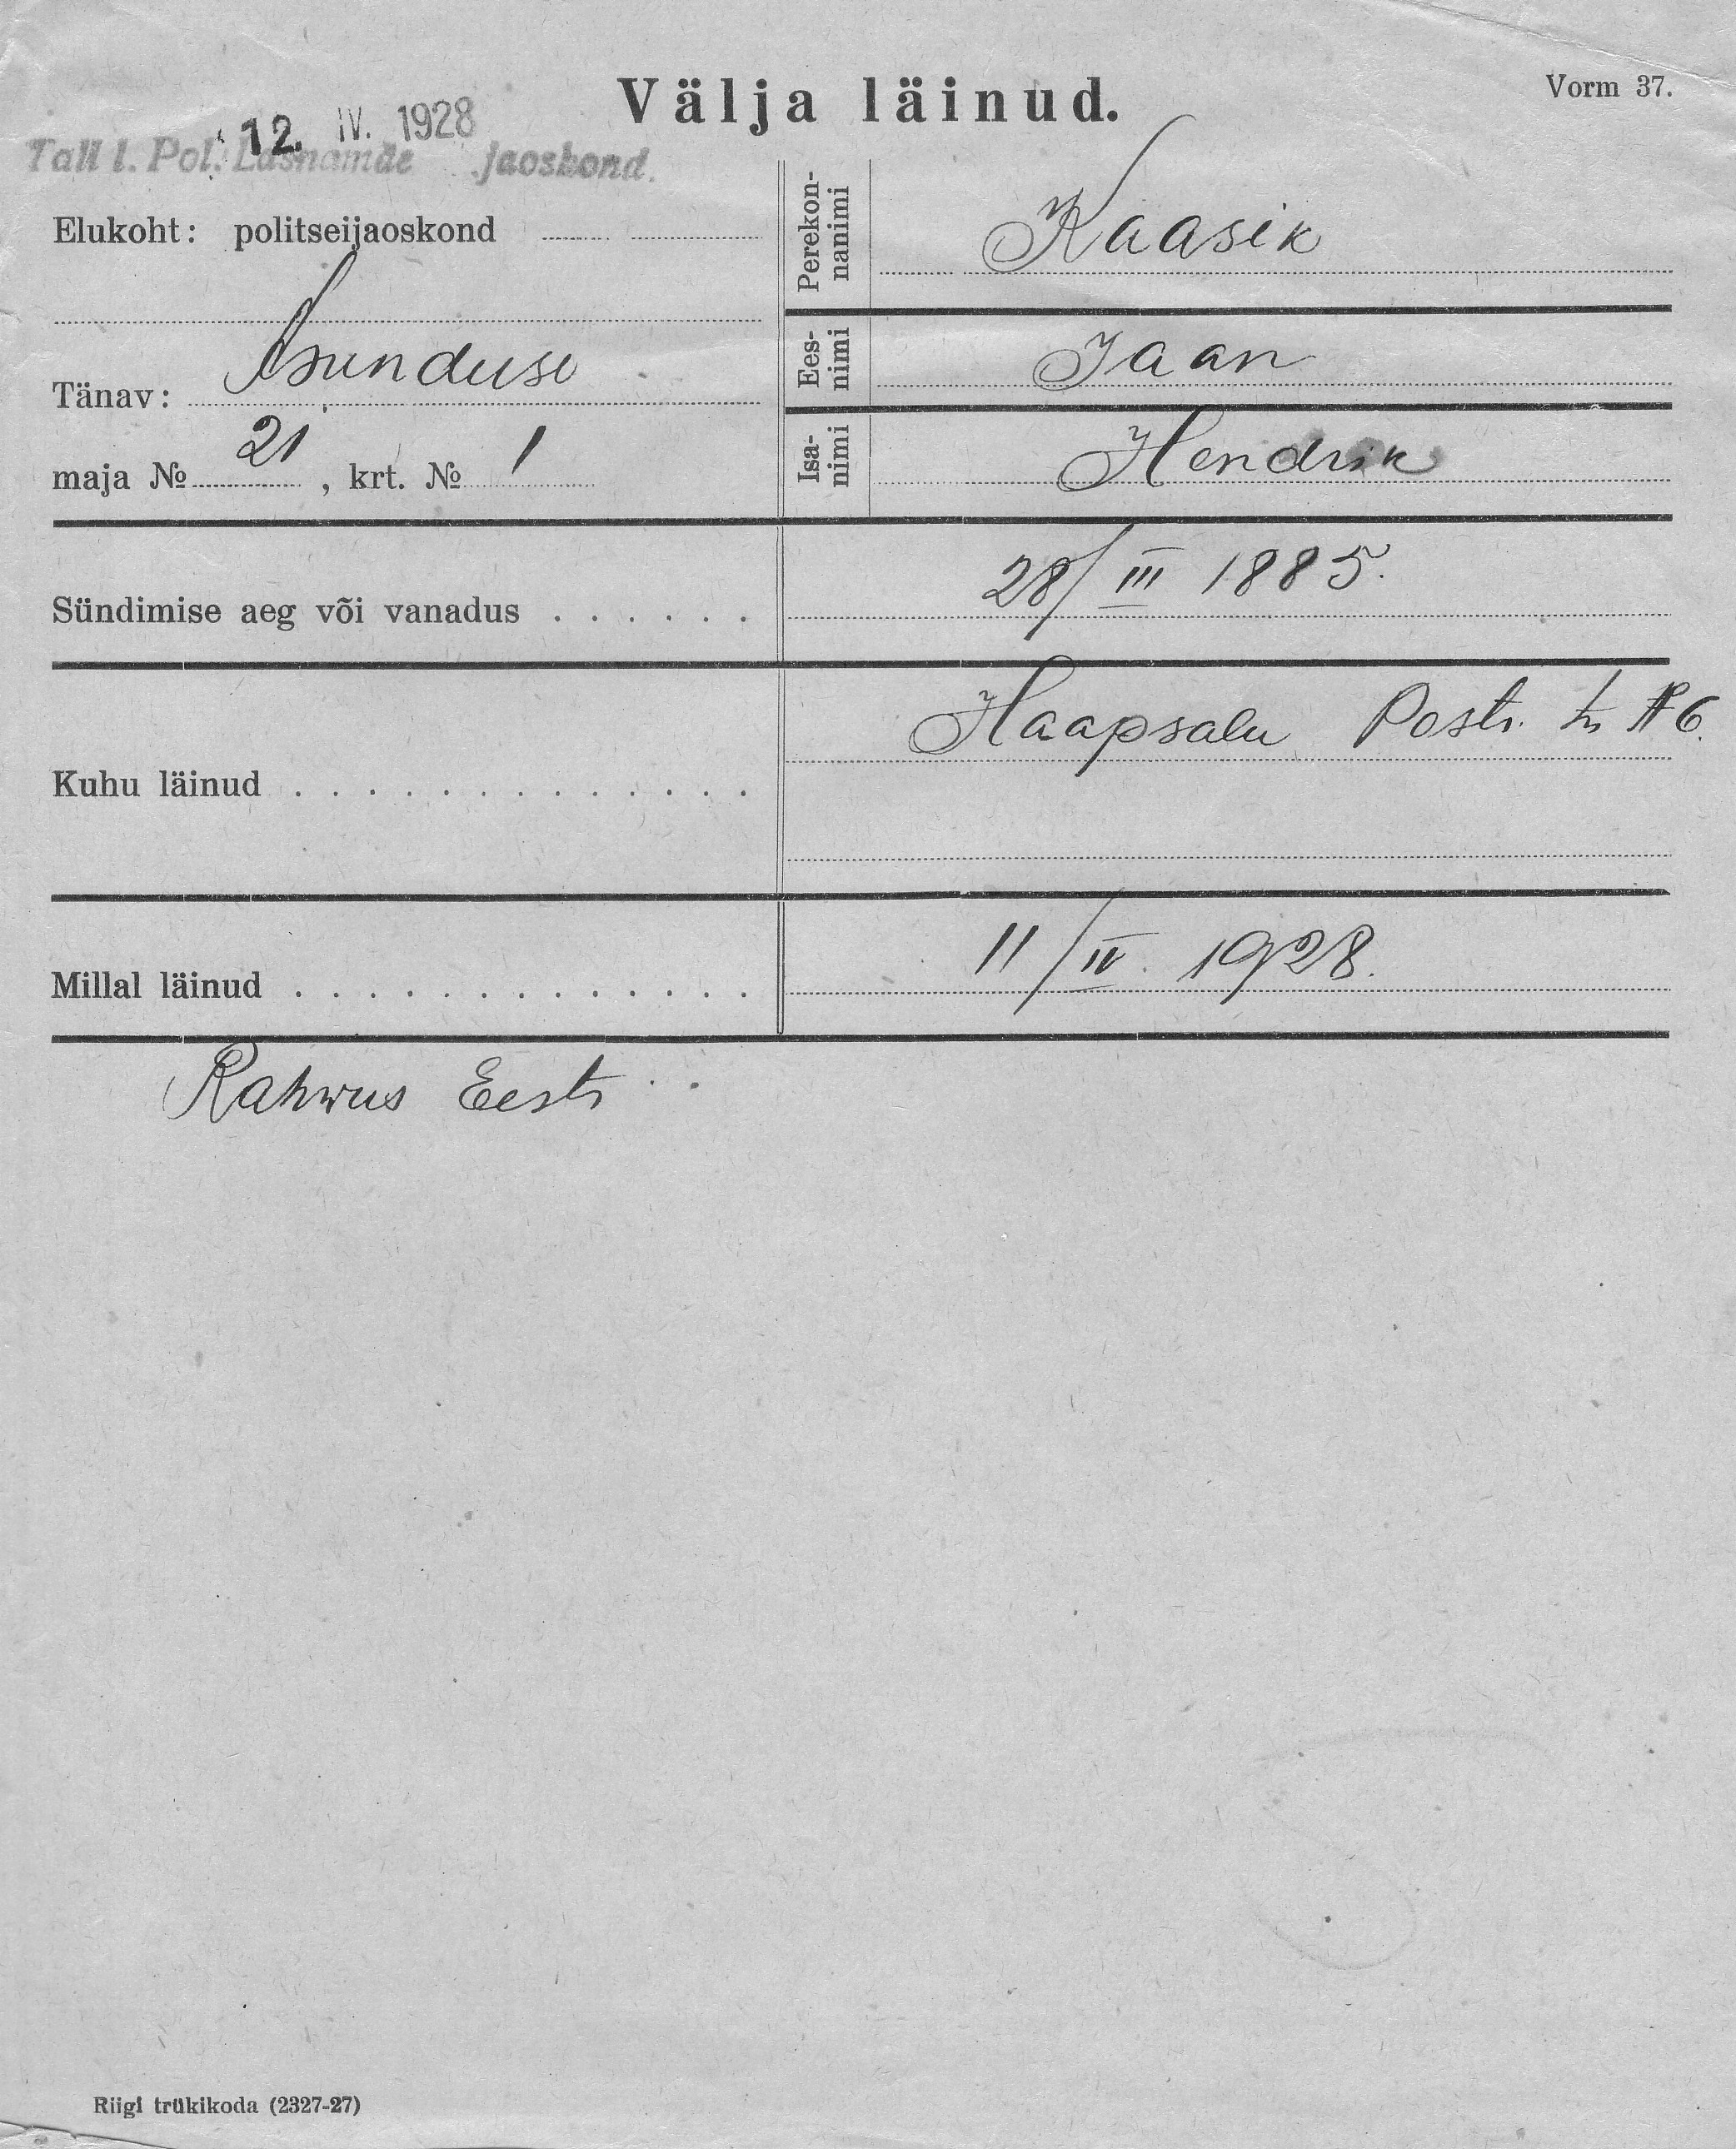 Välja läinud.
Vorm 37.
12. IV. 1928
Tall l. Pol. Lasnamäe jaoskond.
Elukoht: politseijaoskond
Tänav: Asunduse
maja № 21, krt. № 1
Perekon-
nanimi
Kaasik
Ees-
nimi
Jaan
Isa-
nimi
Hendrik
Sündimise aeg või vanadus . . . . . . 28/III 1885.
Kuhu läinud . . . . . . . . . . . . . Haapsalu Posti tn № 6.
Millal läinud . . . . . . . . . . . . . 11/IV. 1928.
Rahwus Eesti
Riigi trükikoda (2327-27)